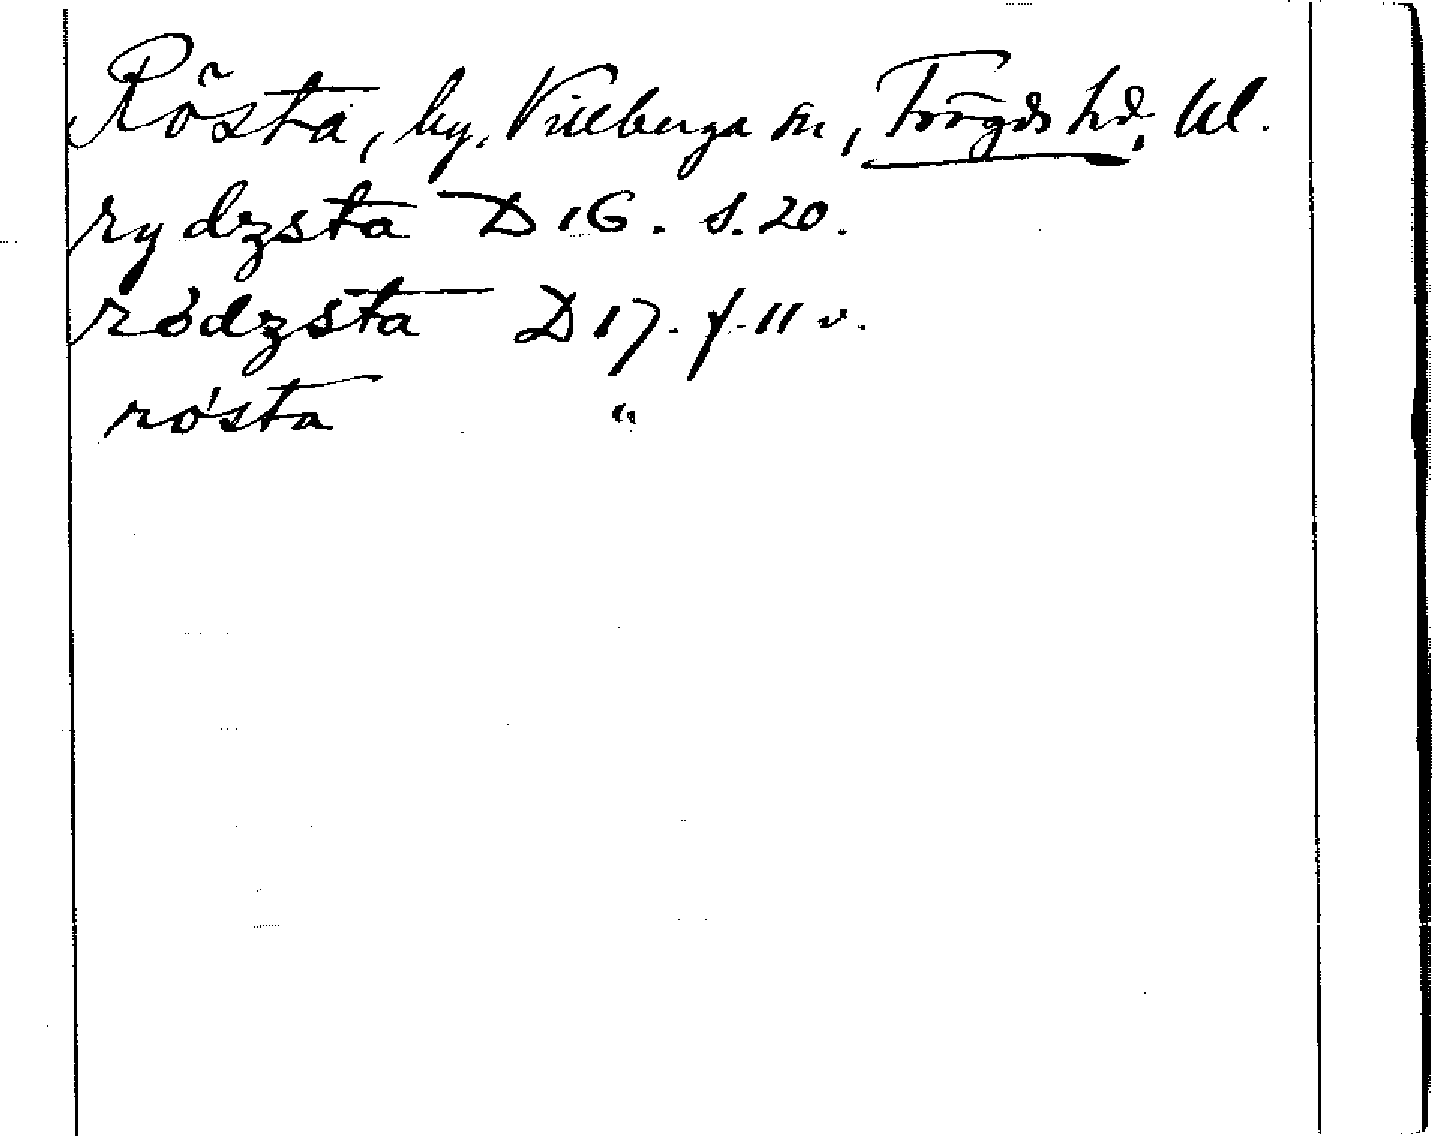 Rösta, by, Villberga sn, Trögds hd, Ul.
rydzsta D 16. s. 20.
ródzsta D 17. f. 11 v.
rósta "